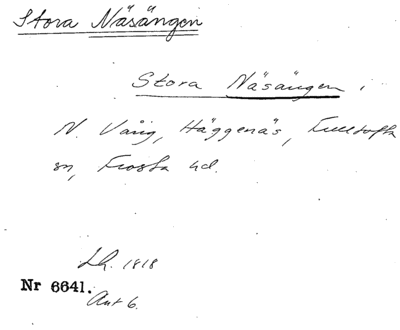 Stora Näsängen
Stora Näsängen i
N. Vång, Häggenäs, Fulltofta
sn, Frosta hd.
Lh. 1818
Nr 6641.
Akt 6.